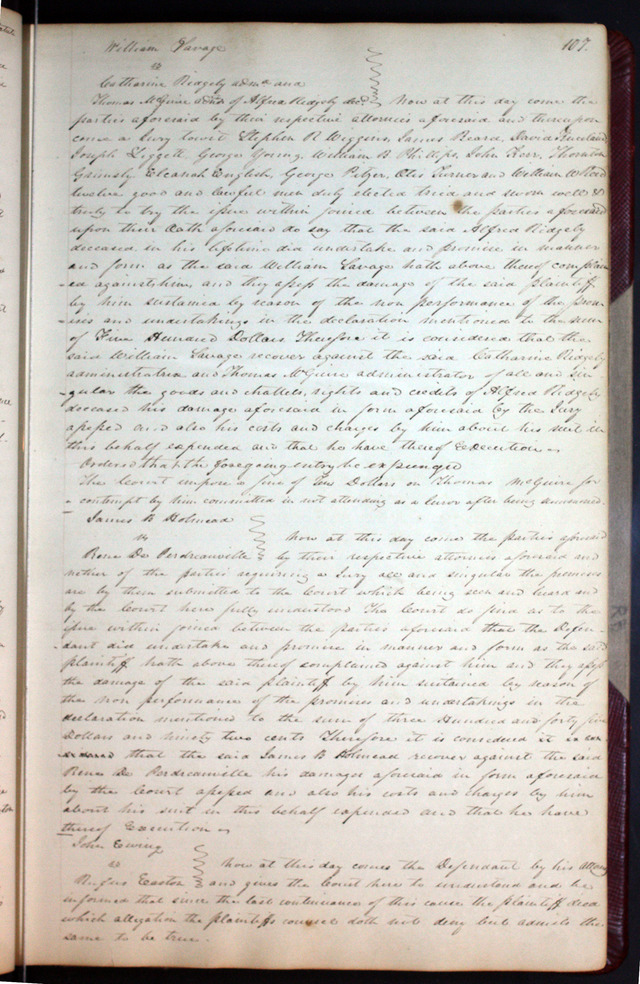 107.
William Savage
vs
Catharine Ridgely admx and
Thomas McGuire admr of Alfred Ridgely decd Now at this day come the
parties aforesaid by their respective attornies aforesaid and thereupon
come a Jury towit Stephen R Wiggins, James Beard, David
Joseph Liggett, George Young, William R Phillips, John Kerr, Thornton
Grimsby Elcanah English, George Pelzer, Otis Turner and William W
twelve good and lawful men duly elected tried and sworn well &
truly to try the issue within joined between the parties aforesaid
upon their Oath aforesaid do say that the said Alfred Ridgely
deceased in his lifetime did undertake and promise in manner
and form as the said William Savage hath above thereof complain
ed against him, and they assess the damage of the said plaintiff
by him sustained by reason of the non performance of the prom
ises and undertakings in the declaration mentioned to the sum
of Five Hundred Dollars Therefore it is considered that the
said William Savage recover against the said Catharine Ridgely
administratrix and Thomas McGuire administrator of all and Sin
gular the goods and chattels, rights and credits of Alfred Ridgely
deceased his damage aforesaid in form aforesaid by the Jury
assessed and also his costs and charges by him about his suit in
this behalf expended and that he have thereof Execution
Ordered that the foregoing entry be expunged
The Court impose a fine of Dollars on Thomas McGuire for
contempt by him committed in not attending as a Juror after being summoned.
James B Holmead
vs Now at this day come the parties aforesaid
Rene De Perdreauville by their respective attornies aforesaid and
neither of the parties requiring a Jury all and singular the premises
are by them submitted to the Court which being seen and heard and
by the Court here fully understood The Court do find as to the
issue within joined between the parties aforesaid that the Defen
dant did undertake and promise in manner and form as the said
plaintiff hath above thereof complained against him and they assess
the damage of the said plaintiff by him sustained by reason of
the non performance of the promises and undertakings in the
declaration mentioned to the sum of three Hundred and forty five
Dollars and ninety two cents Therefore it is considered it is con
sidered that the said James B Holmead recover against the said
Rene De Perdreauville his damages aforesaid in form aforesaid
by the Court assessed and also his costs and charges by him
about his suit in this behalf expended and that he have
thereof Execution
John Ewing
vs Now at this day comes the Defendant by his Attorney
Rufus Easton and gives the Court here to understand and be
informed that since the last continuance of this cause the plaintiff died
which allegation the plaintiffs counsel doth not deny but admits the
same to be true.